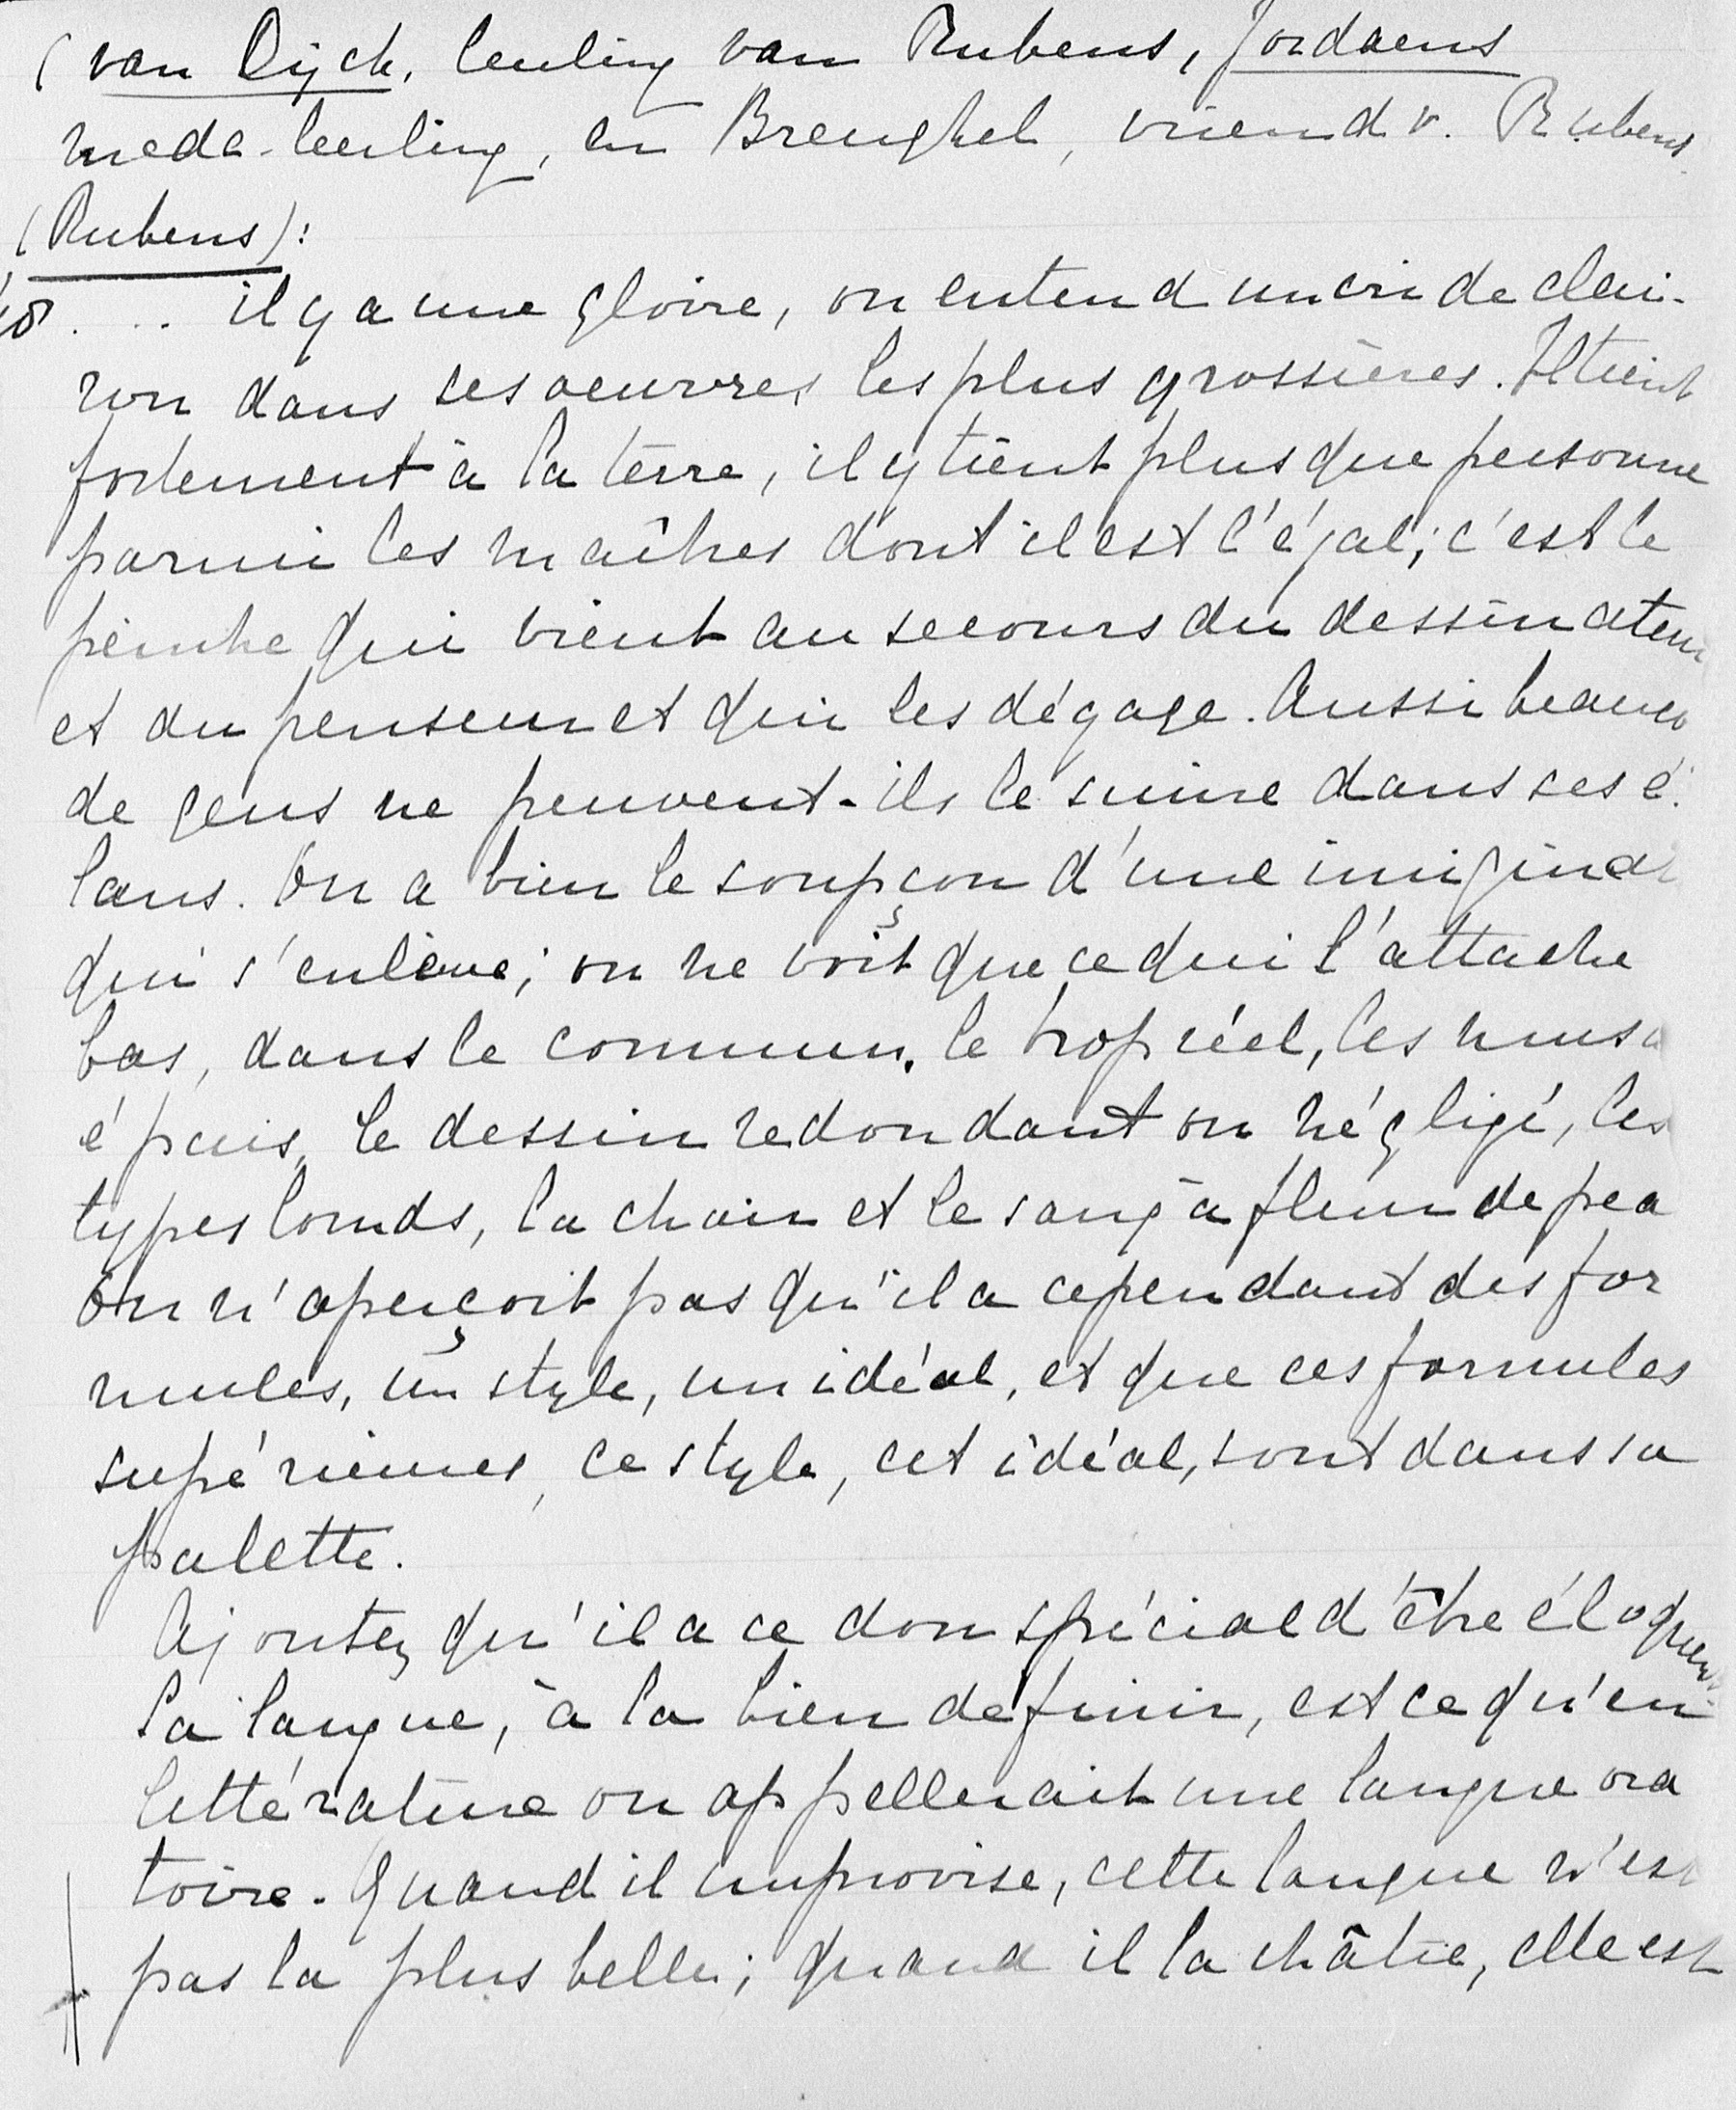 (van Dijck, leuling van Rubens, Jordaens
mede-leerling, en Breughel, vriend v. Rubens
(Rubens):
... il y a une gloire, on entend un cri de clai-
ron dans ses oeuvres les plus grossières. Il tient
fortement à la terre, il y tient plus que personne
parmi les maîtres dont il est l'égal; c'est le
peintre qui vient au secours du dessinateur
et du penseur et qui les dégage. Aussi beauco
de gens ne peuvent-ils le suivre dans ses é.
lans. On a bien le soupçon d'une imigina
qui s'enlève; on ne voit que ce qui l'attache
bas, dans le commun, le trop réel, les musc
épais, le dessin redondant ou négligé, les
types lourds, la chair et le sang à fleur de pea
On n'aperçoit pas qu'il a cependant des for
mules, un style, un idéal, et que ces formules
supérieures, ce style, cet idéal, sont dans sa
palette.
Ajoutez qu'il a ce don spécial d'être éloquen
Sa langue, à la bien définir, est ce qu'en
littérature on appellerait une langue ora
toire. Quand il improvise, cette langue n'est
pas la plus belle; quand il la châtie, elle est